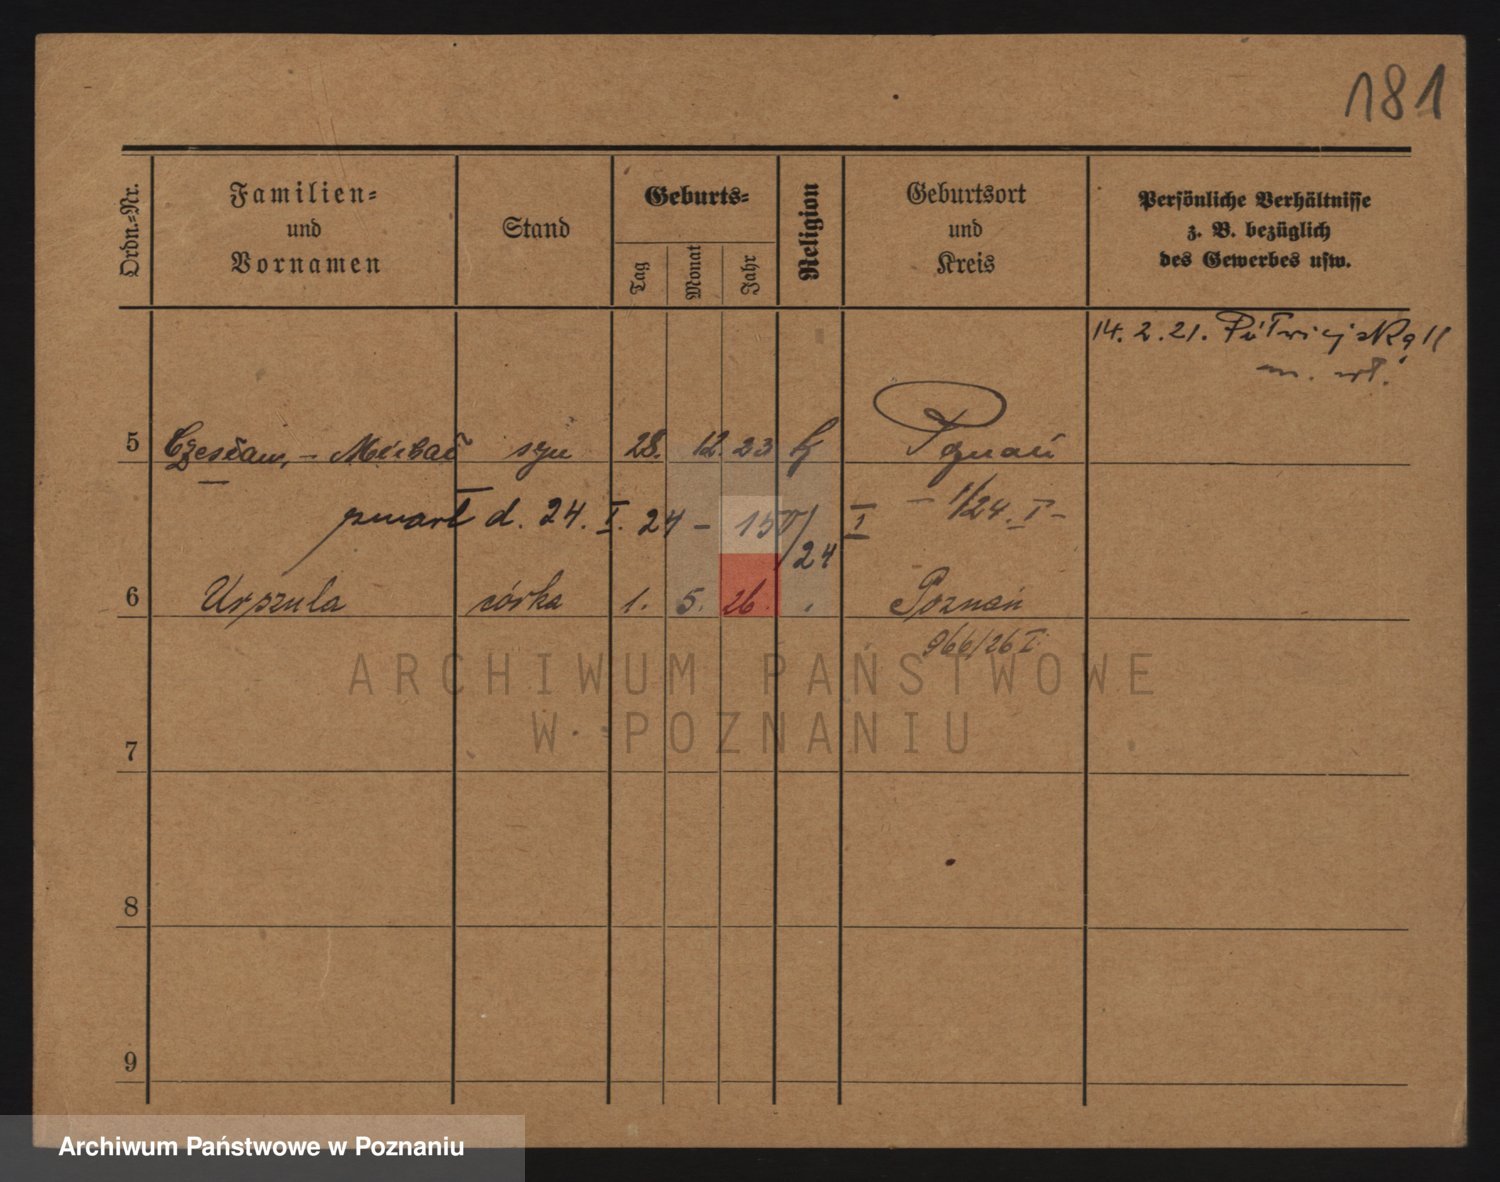 181
Ordn.-Nr.
Familien-
und
Vornamen
Stand
Geburts-
Tag
Monat
Jahr
Religion
Geburtsort
und
Kreis
Persönliche Verhältnisse
z. B. bezüglich
des Gewerbes usw.
14. 2. 21.
5 Czesław, - Michał syn 28. 12. 23 Poznań
- 1/24. I -
zmarł d. 24. I. 24 -
6 Urszula córka 1. 5. 26. Poznań
966/26 I
ARCHIWUM PAŃSTWOWE
W POZNANIU
7
8
9
Archiwum Państwowe w Poznaniu